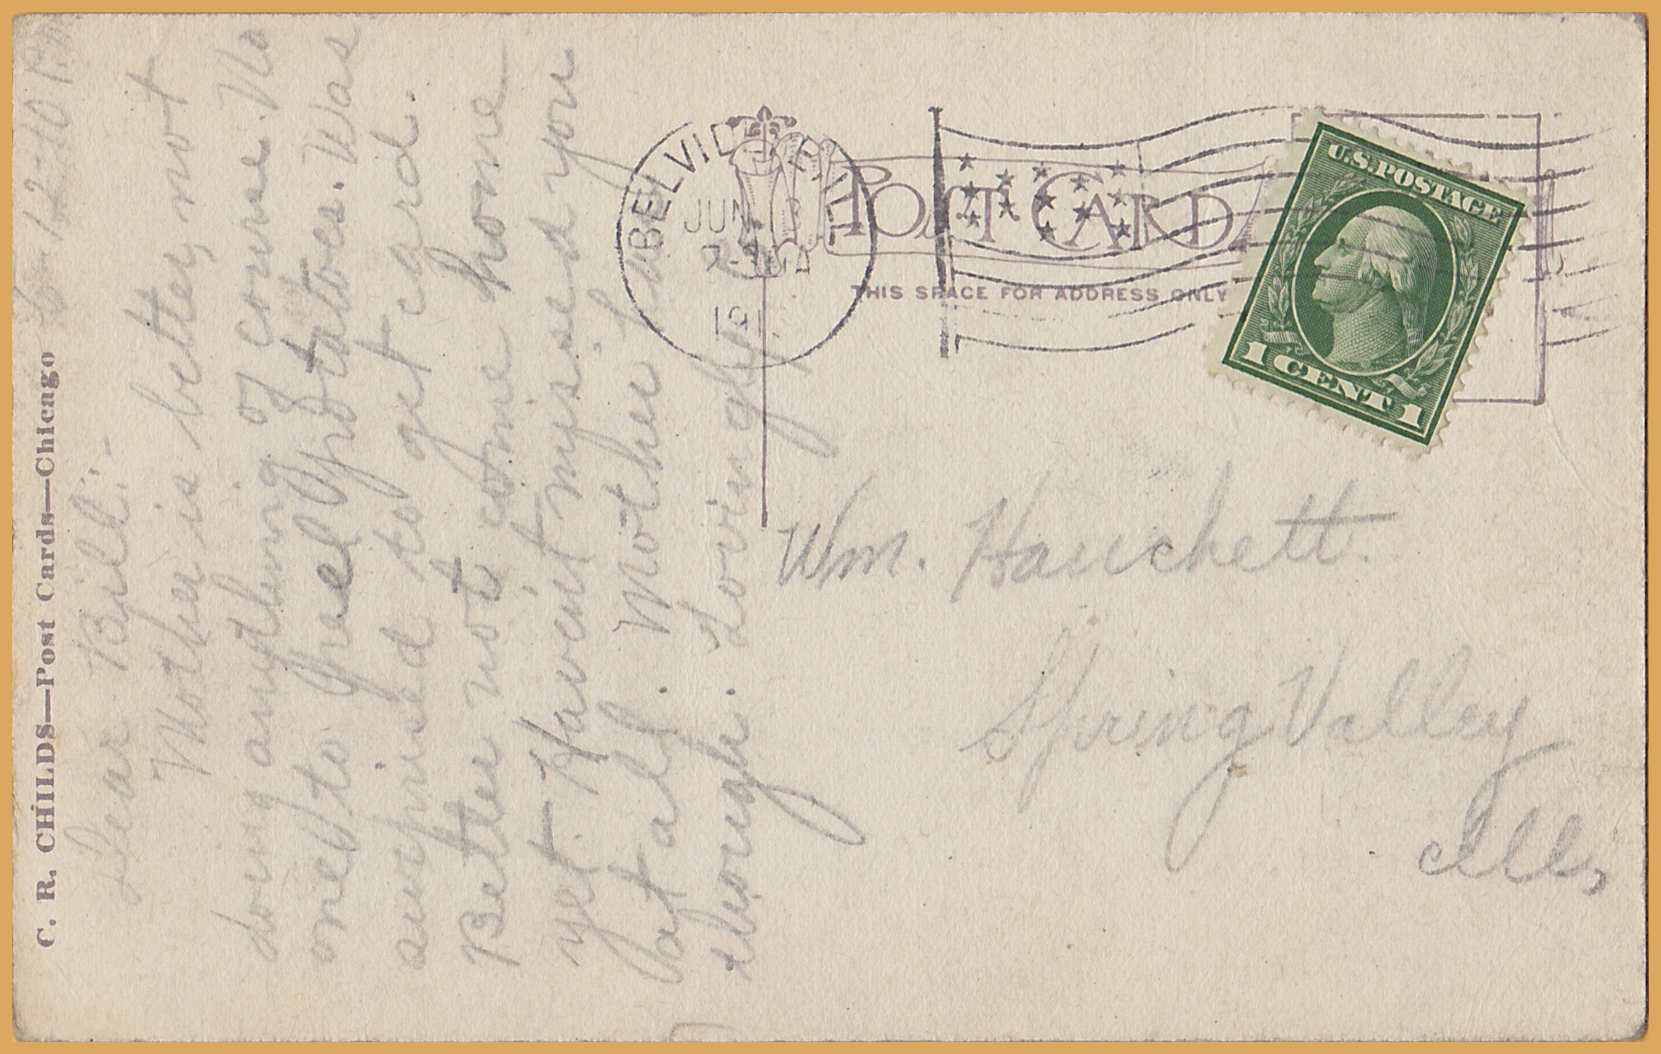 6-12-10 P.M.
Dear Bill:-
Mother is better, not
doing anything of course. No
one to peel potatoes. Was
surprised to get card.
Better not come home
yet. Havent missed you
at all. Mother has
though. Lovingly
C. R. CHILDS—Post Cards—Chicago
BELVID
JUN
POST CARD
THIS SPACE FOR ADDRESS ONLY
U.S. POSTAGE
1 CENT 1
Wm. Hauchett.
Spring Valley
Ills,